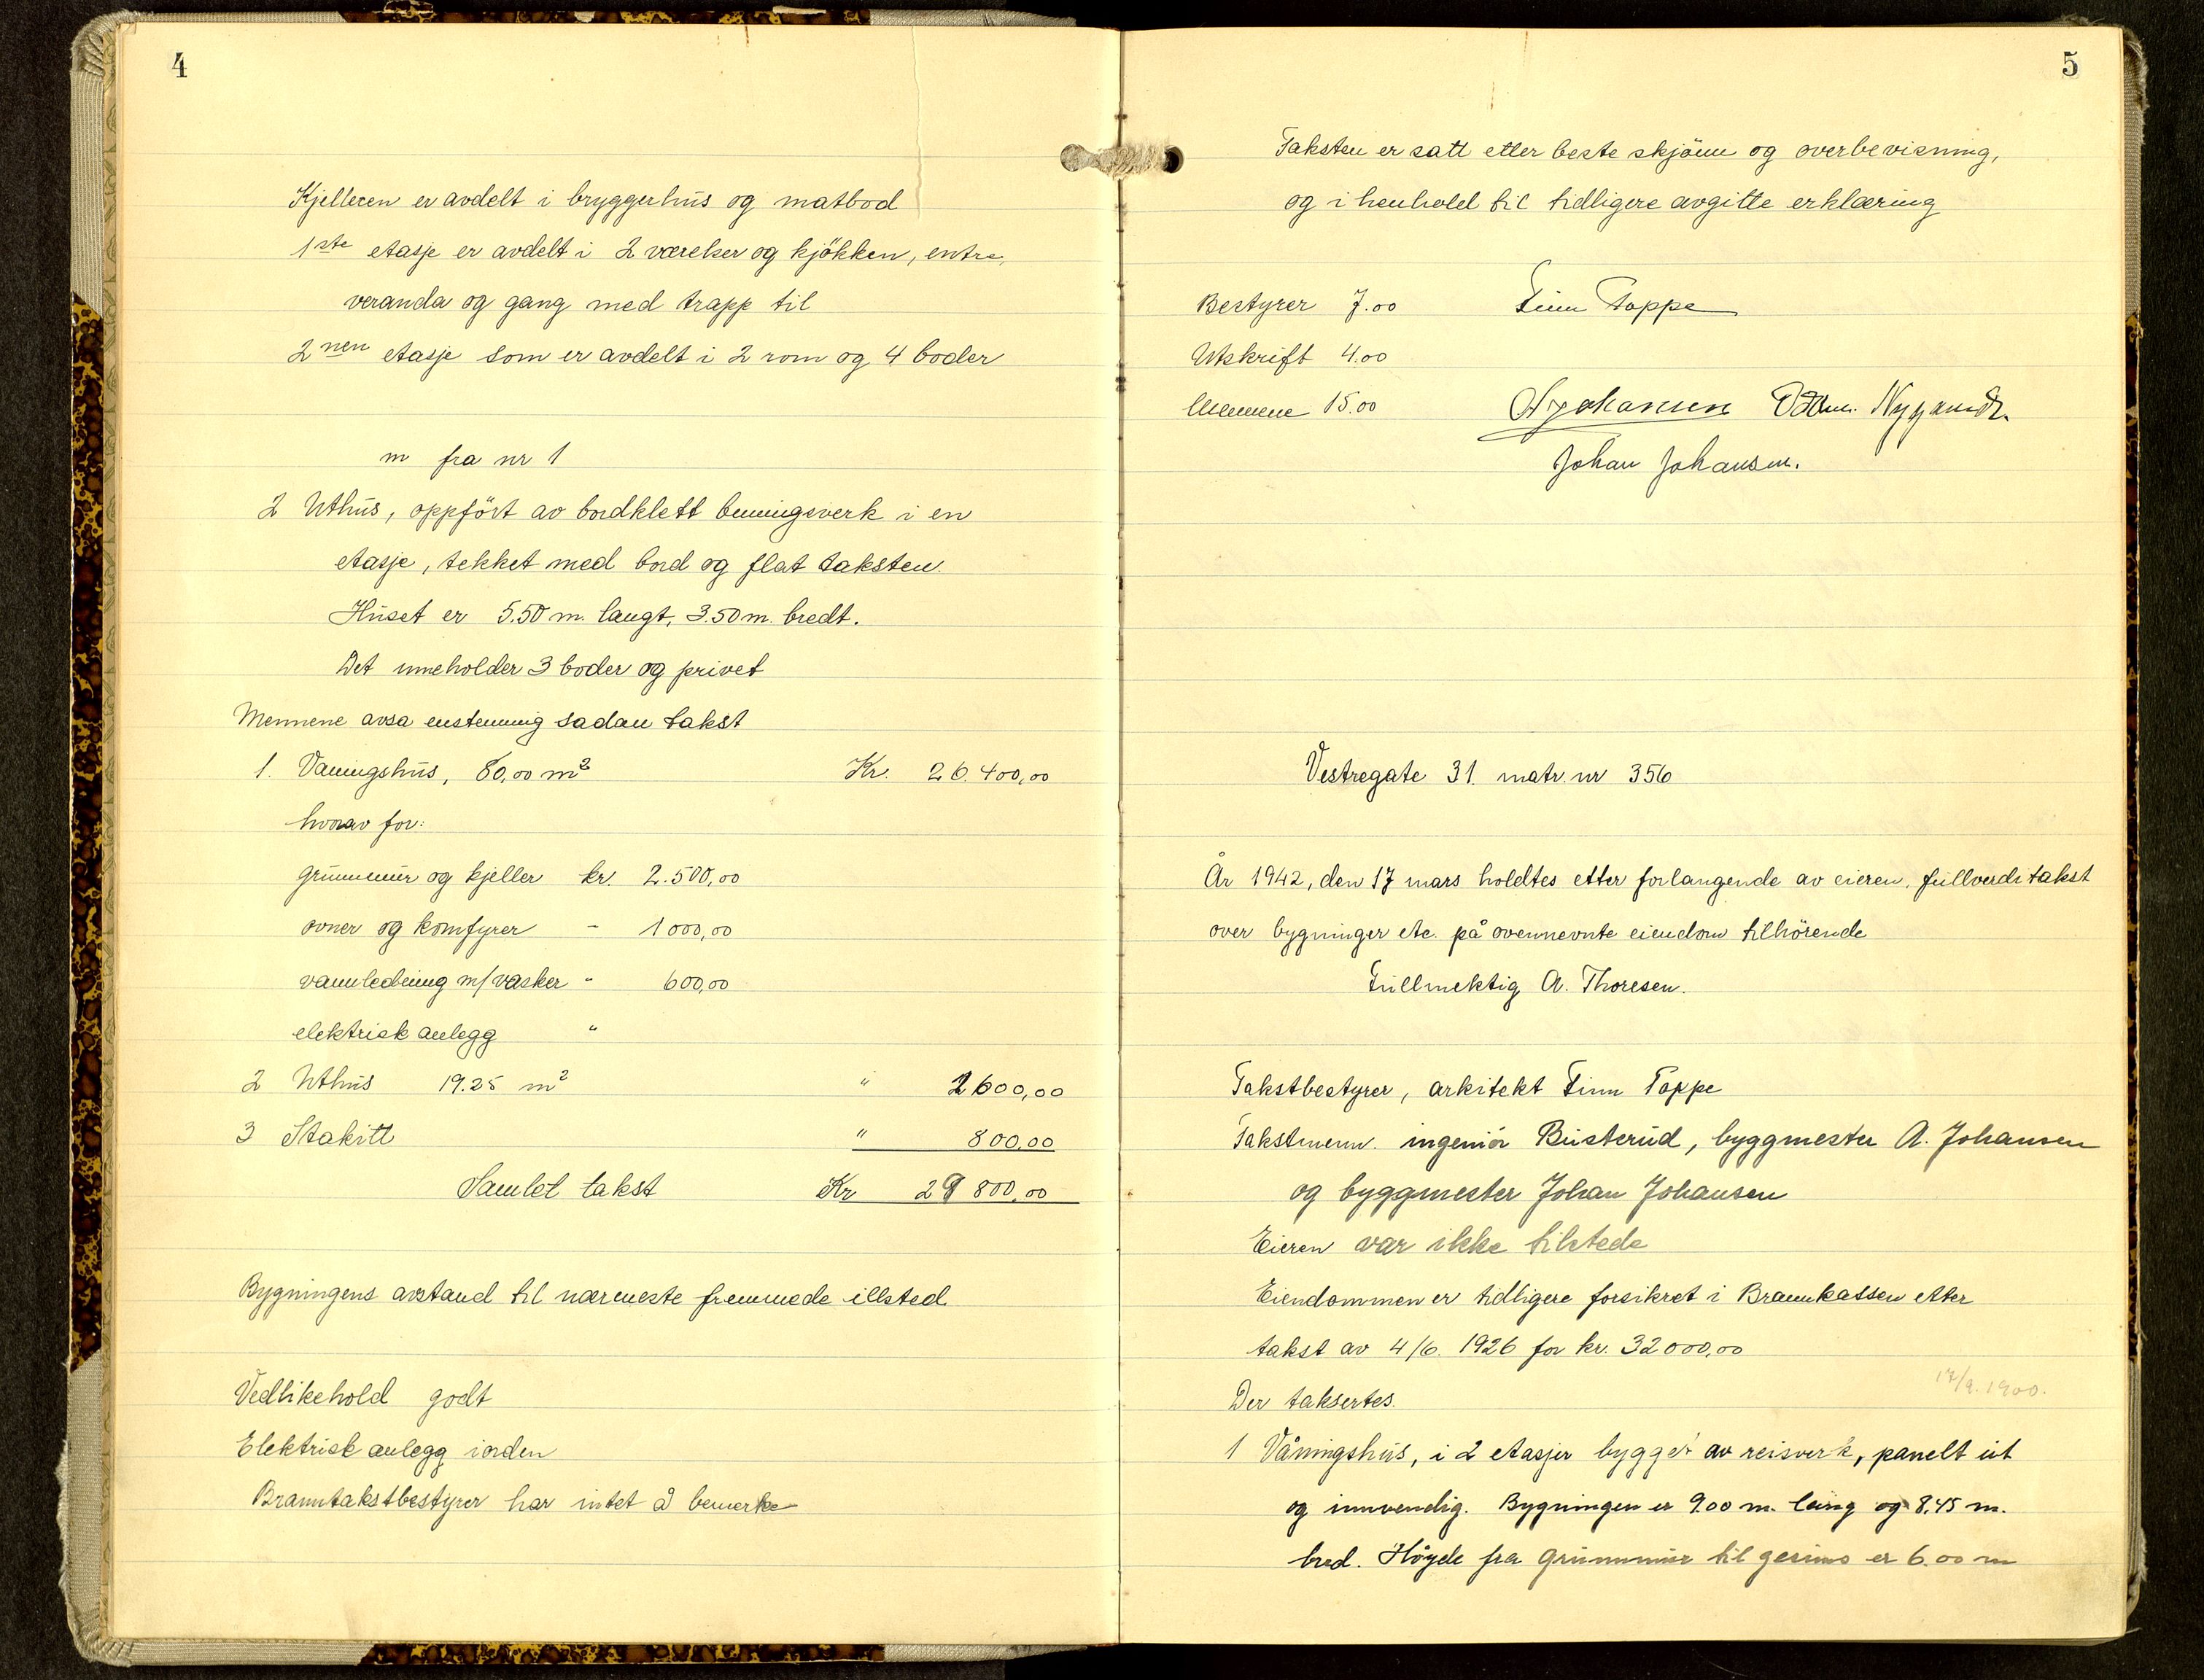 4
Kjelleren er avdelt i bryggerhus og matbod
1ste etasje er avdelt i 2 værelser og kjökken, entre,
veranda og gang med trapp til
2nen etasje som er avdelt i 2 rom og 4 boder
m fra nr 1
2 Uthus, oppfört av bordklett binningsverk i en
etasje, tekket med bord og flat taksten.
Huset er 5.50 m. langt, 3.50 m. bredt.
Det inneholder 3 boder og privet
Mennene avsa enstemmig sadan takst
1. Vaningshus, 80,00 m² Kr. 26.400,00
hvorav for:
grunnmur og kjeller kr. 2.500,00
ovner og komfyrer - 1000,00
vannledning m/vasker " 600,00
elektrisk anlegg "
2 Uthus 19.25 m² " 2600,00
3 Stakitt " 800,00
Samlet takst Kr 29 800,00
Bygningens avstand til nærmeste fremmede illsted
Vedlikehold godt
Elektrisk anlegg iorden
Branntakstbestyrer har intet å bemerke
5
Taksten er satt etter beste skjönn og overbevisning,
og i henhold til tidligere avgitte erklæring
Bestyrer 7.00 Finn Poppe
Utskrift 4.00
Mennene 15.00 A Johansen
Johan Johansen.
Vestregate 31. matr. nr 356
År 1942, den 17 mars holdtes etter forlangende av eieren, fullverditakst
over bygninger etc. på ovennevnte eiendom tilhörende
Fullmektig A. Thoresen.
Takstbestyrer, arkitekt Finn Poppe
Takstmenn. ingeniör Busterud, byggmester A. Johansen
og byggmester Johan Johansen
Eieren var ikke tilstede
Eiendommen er tidligere forsikret i Brannkassen etter
takst av 4/6. 1926 for kr. 32000,00
17/9. 1900.
Der taksertes.
1 Våningshus, i 2 etasjer bygget av reisverk, panelt ut
og innvendig. Bygningen er 9.00 m. lang og 8.45 m.
bred. Höyde fra grunnmur til gesims er 6.00 m